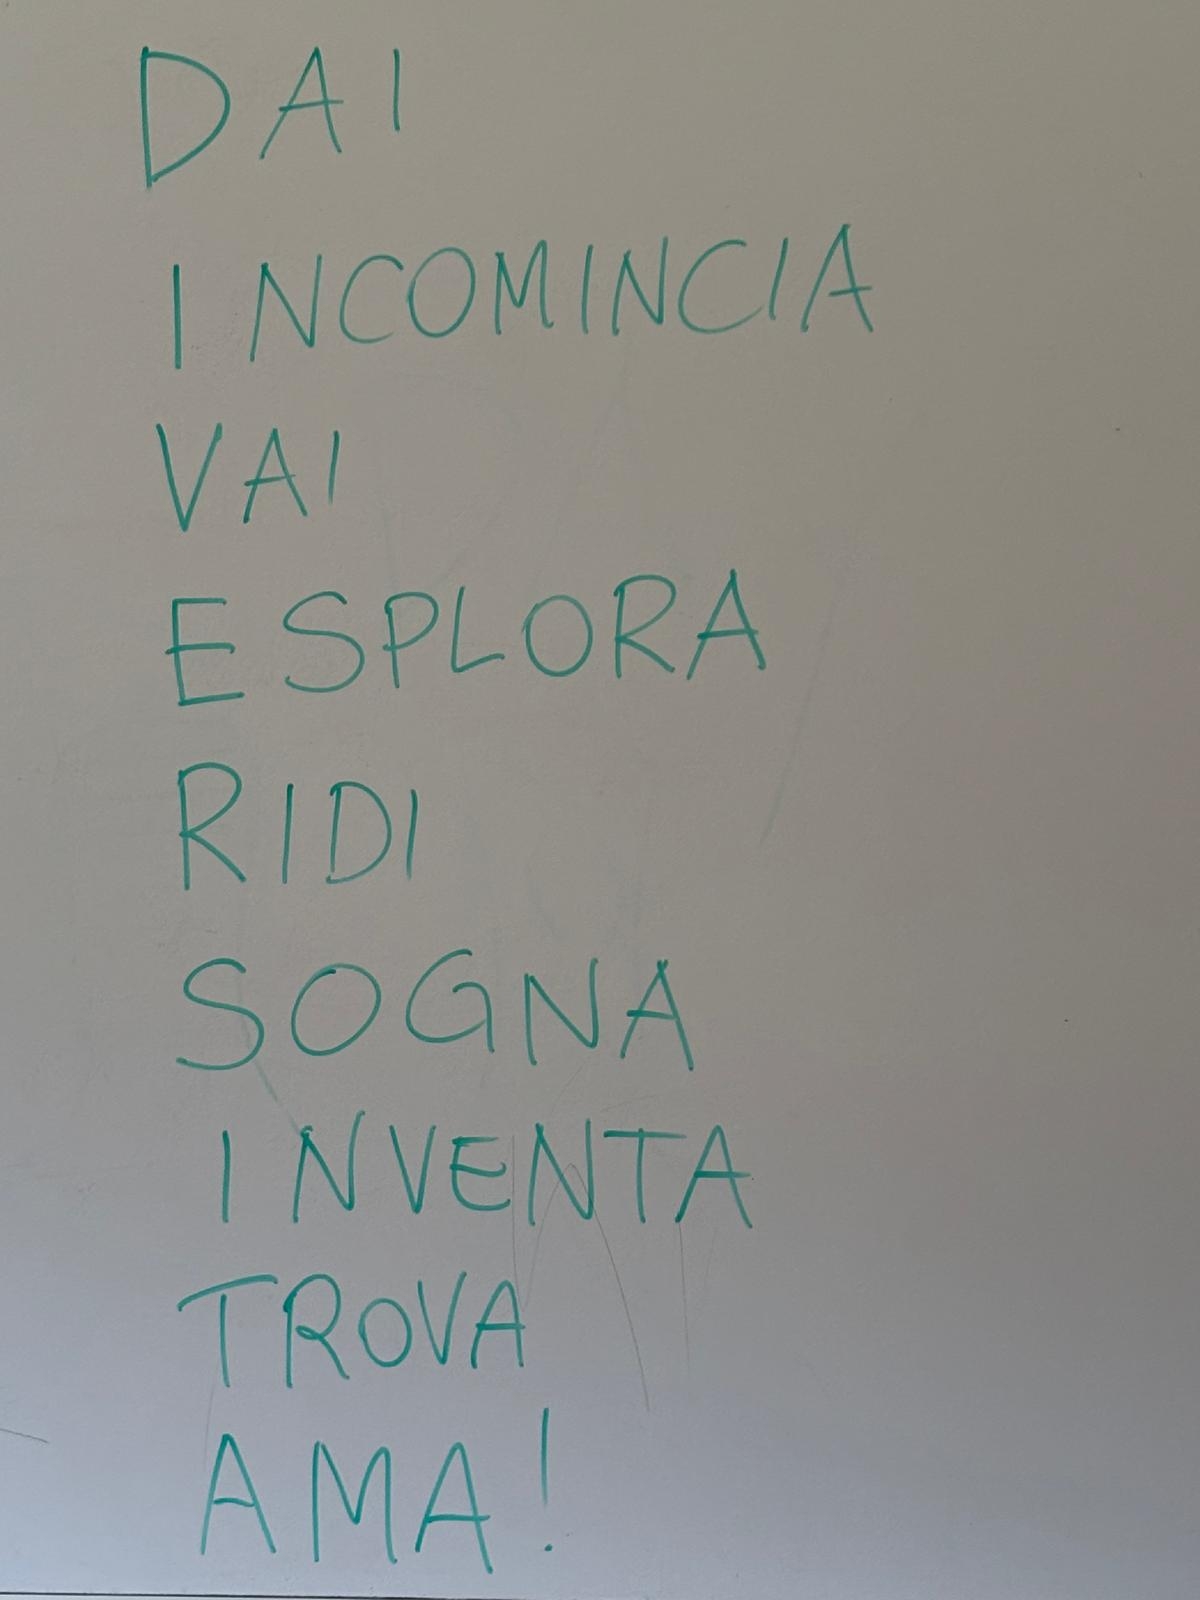 DAI
INCOMINCIA
VAI
ESPLORA
RIDI
SOGNA
INVENTA
TROVA
AMA!